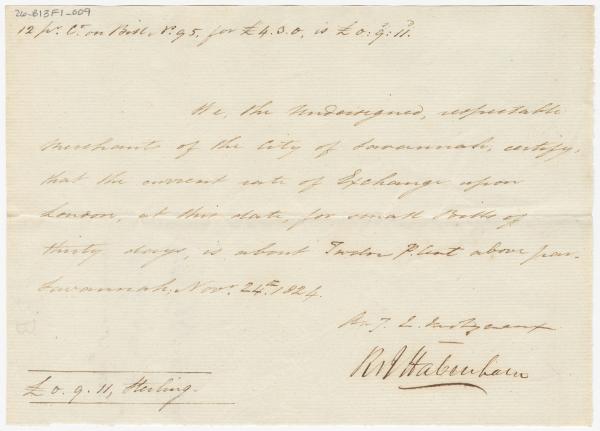 26-B13F1-009
12 pr. Ct. on Bill No. 95, for £4.3.0, is £0.9.11.
We, the Undersigned, respectable
Merchants of the City of Savannah, certify,
that the current rate of Exchange upon
London, at this date, for small Bills of
thirty days, is about Twelve P. Cent above par.
Savannah, Novr. 24th. 1824.
R. J. Habersham
£0.9.11, Sterling.